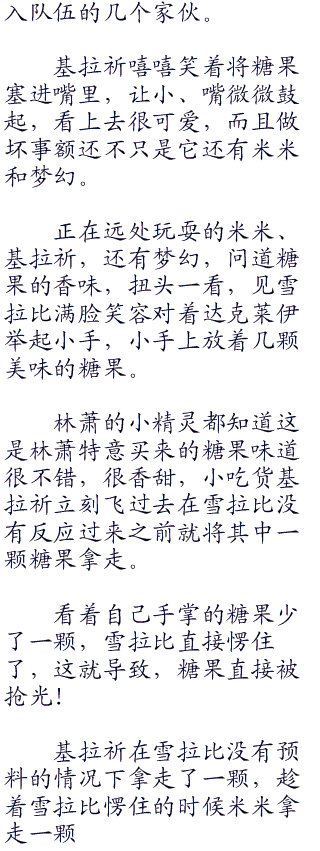 入队伍的几个家伙。
基拉祈嘻嘻笑着将糖果
塞进嘴里，让小、嘴微微鼓
起，看上去很可爱，而且做
坏事额还不只是它还有米米
和梦幻。
正在远处玩耍的米米、
基拉祈，还有梦幻，问道糖
果的香味，扭头一看，见雪
拉比满脸笑容对着达克莱伊
举起小手，小手上放着几颗
美味的糖果。
林萧的小精灵都知道这
是林萧特意买来的糖果味道
很不错，很香甜，小吃货基
拉祈立刻飞过去在雪拉比没
有反应过来之前就将其中一
颗糖果拿走。
看着自己手掌的糖果少
了一颗，雪拉比直接愣住
了，这就导致，糖果直接被
抢光！
基拉祈在雪拉比没有预
料的情况下拿走了一颗，趁
着雪拉比愣住的时候米米拿
走一颗